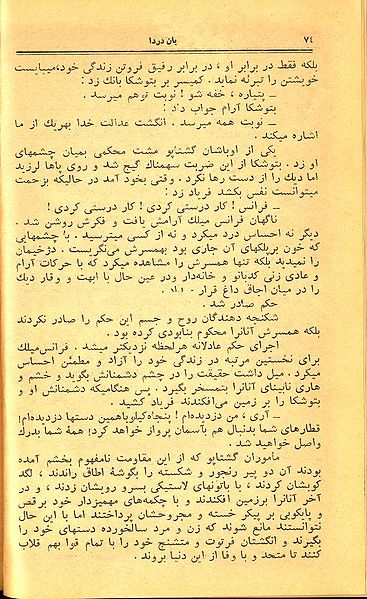 ۷۴
یان دردا
بلکه فقط در برابر او ، در برابر رفیق فروتن زندگی خود،میبایست
خویشتن را تبرئه نماید . کمیسر بر بتوشکا بانگ زد :
ـ پتیاره ، خفه شو ! نوبت توهم میرسد .
بتوشکا آرام جواب داد :
ـ نوبت همه میرسد . انگشت عدالت خدا بهریک از ما
اشاره میکند .
یکی از اوباشان گشتاپو مشت محکمی بمیان چشمهای
او زد . بتوشکا از این ضربت سهمناک گیج شد و روی پاها لرزید
اما دیک را از دست رها نکرد . وقتی بخود آمد در حالیکه بزحمت
میتوانست نفس بکشد فریاد زد :
ـ فرانس ! کار درستی کردی ! کار درستی کردی !
ناگهان فرانس میلک آرامش یافت و فکرش روشن شد .
دیگر نه احساس درد میکرد و نه از کسی میترسید . با چشمهایی
که خون برپلکهای آن جاری بود بهمسرش می‌نگریست . دژخیمان
را نمیدید بلکه تنها همسرش را مشاهده میکرد که با حرکات آرام
و عادی زنی کدبانو و خانه‌دار ودر عین حال با ابهت و وقار دیک
را در میان اجاق داغ قرار
حکم صادر شد .
شکنجه دهندگان روح و جسم این حکم را صادر نکردند
بلکه همسرش آنانرا محکوم بنابودی کرده بود .
اجرای حکم عادلانه هرلحظه نزدیکتر میشد . فرانس‌میلک
برای نخستین مرتبه در زندگی خود را آزاد و مطمئن احساس
میکرد . میل داشت حقیقت را در چشم دشمنانش بگوید و خشم و
هاری نابینای آنانرا بتمسخر بگیرد . پس هنگامیکه دشمنانش او و
بتوشکا را بر زمین می‌افکندند فریاد کشید .
ـ آری ، من دزدیده‌ام ! پنجاه‌کیلوباهمین دستها دزدیده‌ام!
قطارهای شما بدنبال هم بآسمان پرواز خواهد کرد! همهٔ شما بدرک
واصل خواهید شد .
ماموران گشتاپو که از این مقاومت نامفهوم بخشم آمده
بودند آن دو پیر رنجور و شکسته را بگوشهٔ اطاق راندند ، لگد
کوبشان کردند ، با باتونهای لاستیکی بسرو رویشان زدند ، و در
آخر آنانرا برزمین افکندند و با چکمه‌های مهمیزدار خود برقص
و پایکوبی بر پیکر خسته و مجروحشان پرداختند اما با این حال
نتوانستند مانع شوند که زن و مرد سالخورده دستهای خود را
بگیرند و انگشتان فرتوت و متشنج خود را با تمام قوا بهم قلاب
کنند تا متحد و با وفا از این دنیا بروند .